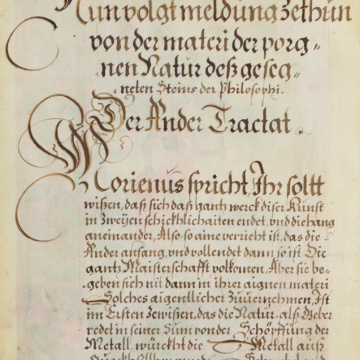 Nun volgt meldung zethun
von der materi der porg„
nen Natur deß geseg„
neten Steins der Philosophi.
Der Ander Tractat.
Morienus spricht, Ihr soltt
wißen, daß sich daß gantz werck diser Kunst
in Zweyen schickhlichaiten endet, vnd die hang
aneinander, Also, so aine verricht ist, das die
Ander anfang, vnd vollendet dann, so ist Die
gantz Maisterschafft volkomen. Aber sie be„
geben sich nit dann in ihrer aignen materi
Solches aigentlicher Zuuernemen, Ist
im Ersten Zewißen, das die Natur, alß Geber
redet in seiner Sum von der Schöpffung der
Metall, würckht die Metall auß